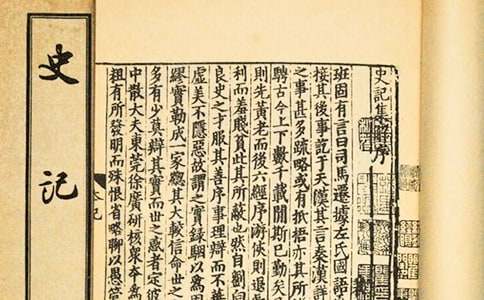 史記集解序
班固有言曰司馬遷據左氏國語
接其後事訖于天漢其言秦漢詳
之事甚多疏略或有抵捂亦其所
騁古今上下數千載閒斯已勤矣
則先黃老而後六經序游俠則退處
利而羞賤貧此其所蔽也然自劉向
良史之才服其善序事理辯而不華
虛美不隱惡故謂之實錄駰以為固
繆實勒成一家緫其大較信命世之
多有少莫辯其實而世之惑者定彼
中散大夫東莞徐廣研核衆本為
粗有所發明而殊恨省略聊以愚管
史記